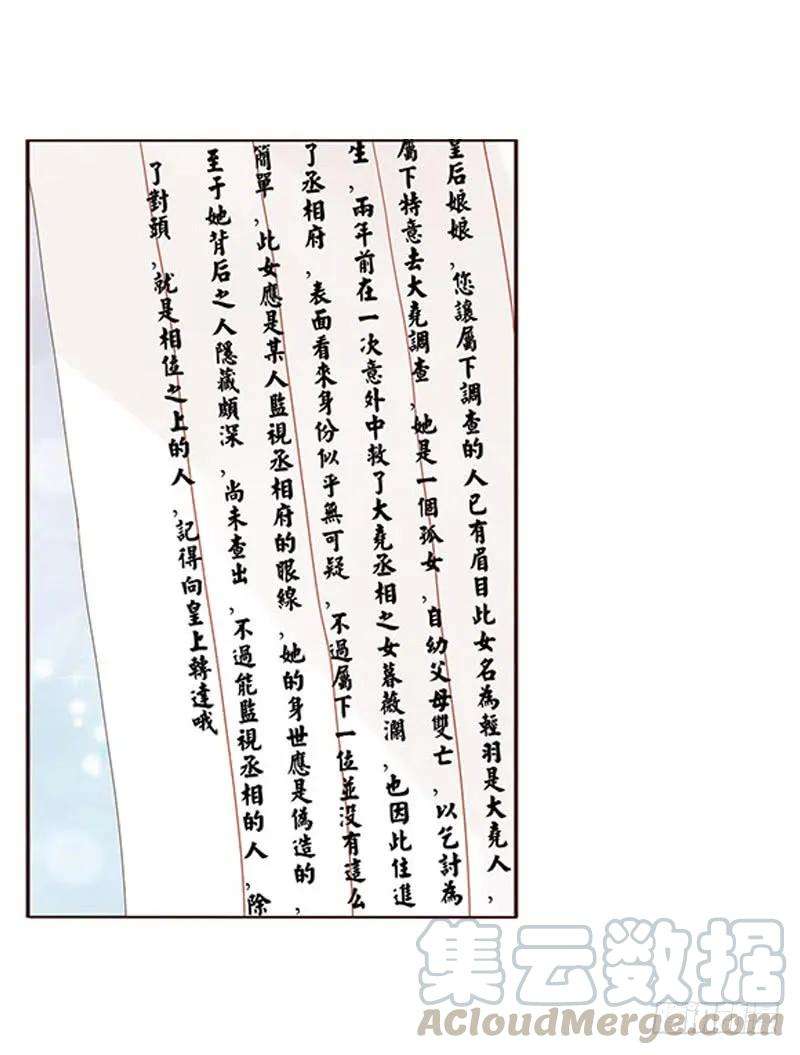 皇后娘娘,您讓屬下調查的人已有眉目此女名為輕羽是大堯人,
屬下特意去大堯調查,她是一個孤女,自幼父母雙亡,以乞討為
生,兩年前在一次意外中救了大堯丞相之女暮薇瀾,也因此住進
了丞相府,表面看來身份似乎無可疑,不過屬下一位並沒有這么
簡單,此女應是某人監視丞相府的眼線,她的身世應是偽造的,
至于她背后之人隱藏頗深,尚未查出,不過能監視丞相的人,除
了對頭,就是相位之上的人,記得向皇上轉達哦
集云数据
AcloudMerge.com